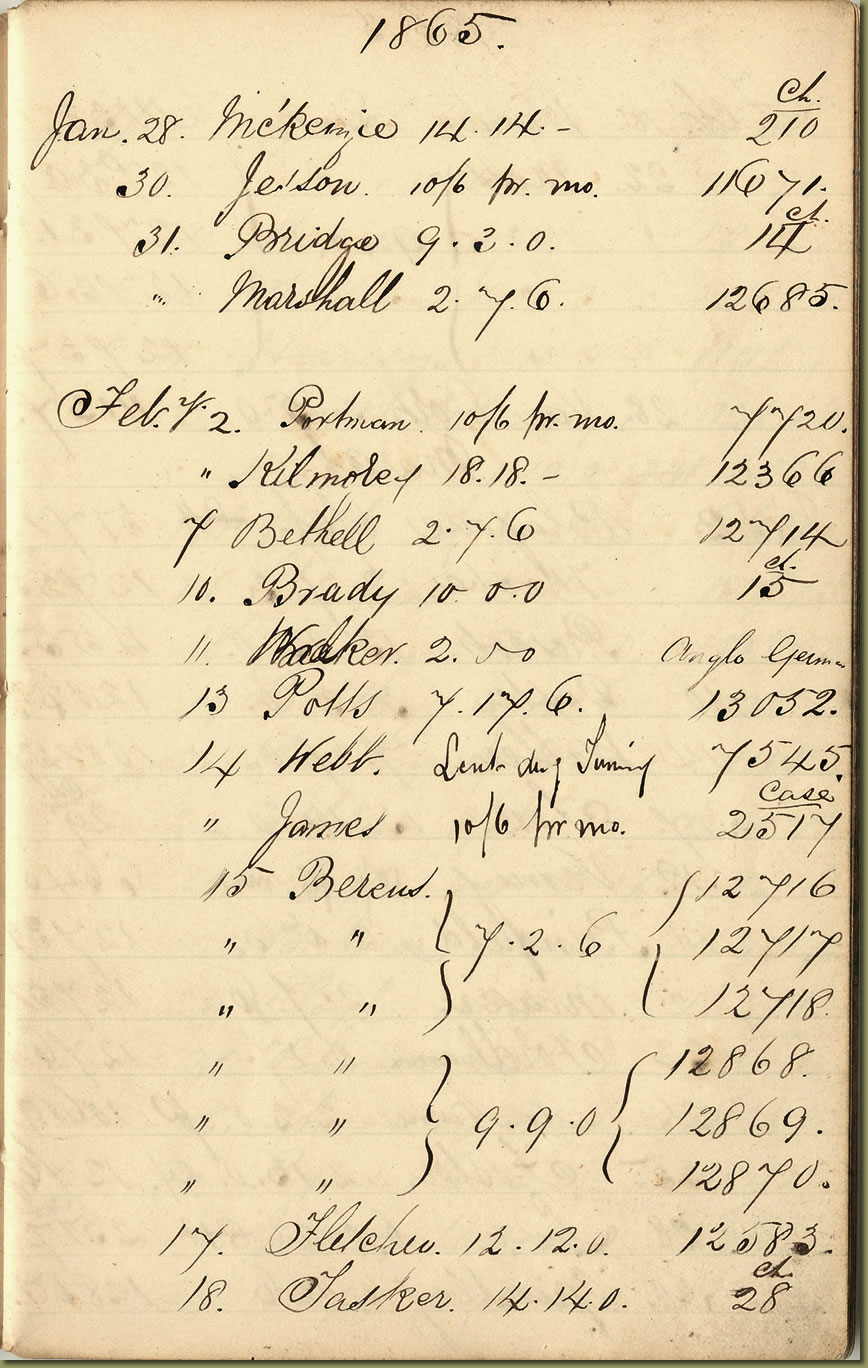 1865.
ch.
Jan. 28. McKenzie 14.14.- 210
30. Je'son. 10/6 pr. mo. 11671.
ch.
31. Bridge 9.3.0. 14
" Marshall 2.7.6. 12685.
Feb.y 2. Portman. 10/6 pr. mo. 7720.
" Kilmorey 18.18.- 12366
7 Bethell 2.7.6 12714
ch.
10. Brady 10 0.0 15
11. Walker. 2. 5 0 Anglo German
13 Potts 7.17.6. 13052.
14 Webb. Lent 7545.
Case
" James 10/6 pr mo. 2517
15 Berens. 12716
" " 7.2.6 12717
" " 12718.
" " 12868.
" " 9.9.0 12869.
" " 12870.
17. Fletcher. 12.12.0. 12583.
ch.
18. Tasker. 14.14.0. 28